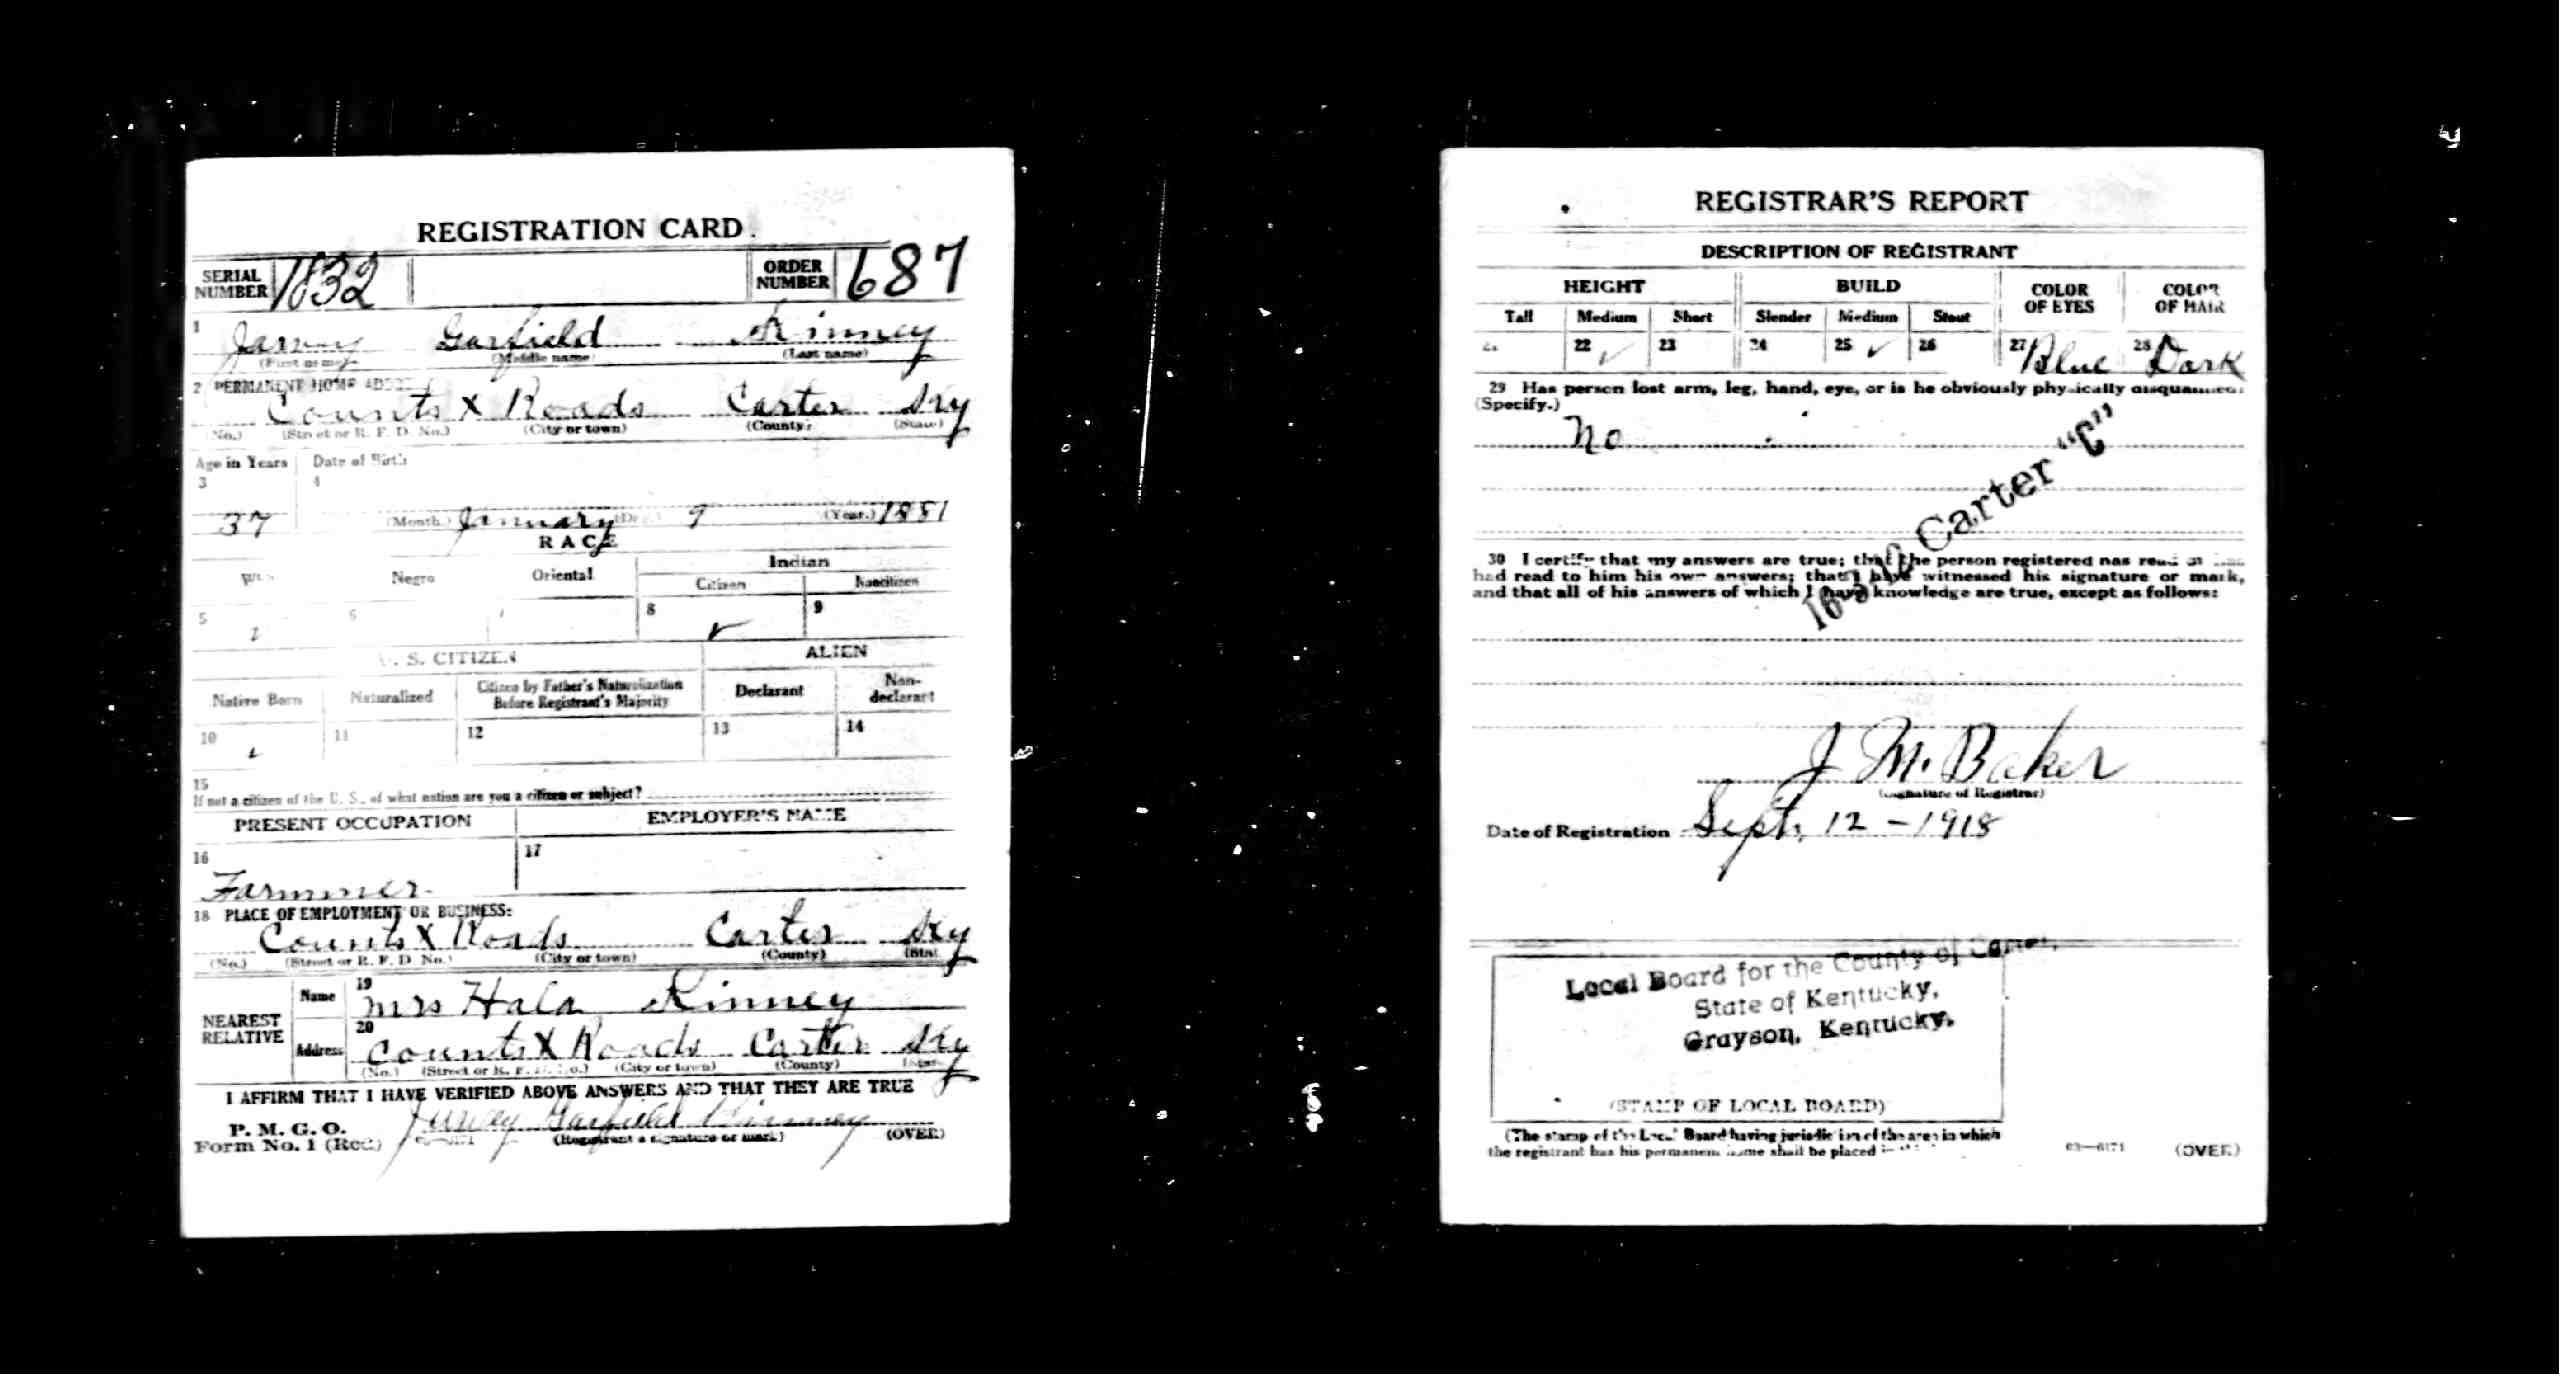 REGISTRATION CARD
SERIAL NUMBER 1832 ORDER NUMBER 687
1 Garfield Kinney
(First name) (Middle name) (Last name)
2 PERMANENT HOME
Counts X Roads Carter Ky
(No.) (Street or R. F. D. No.) (City or town) (County) (State)
Age in Years Date of Birth
3 4
37 (Month.) January (Day.) 9 (Year.) 1881
RACE
Negro Oriental Indian
Citizen Noncitizen
5 6 7 8 ✓ 9
U. S. CITIZEN ALIEN
Native Born Naturalized Citizen by Father's Naturalization Before Registrant's Majority Declarant Non-declarant
10 11 12 13 14
15
If not a citizen of the U. S., of what nation are you a citizen or subject?
PRESENT OCCUPATION EMPLOYER'S NAME
16 17
Farmmer
18 PLACE OF EMPLOYMENT OR BUSINESS:
Counts X Roads Carter Ky
(No.) (Street or R. F. D. No.) (City or town) (County) (State)
NEAREST RELATIVE Name 19 Mrs Hala Kinney
Address 20 Counts X Roads Carter Ky
(No.) (Street or R. F. D. No.) (City or town) (County) (State)
I AFFIRM THAT I HAVE VERIFIED ABOVE ANSWERS AND THAT THEY ARE TRUE
P. M. G. O. Garfield Kinney
Form No. 1 (Red) (Registrant's signature or mark) (OVER)
REGISTRAR'S REPORT
DESCRIPTION OF REGISTRANT
HEIGHT BUILD COLOR OF EYES COLOR OF HAIR
Tall Medium Short Slender Medium Stout
21 22 ✓ 23 24 25 ✓ 26 27 Blue 28 Dark
29 Has person lost arm, leg, hand, eye, or is he obviously physically disqualified?
(Specify.)
No
Carter "C"
30 I certify that my answers are true; that the person registered has read or has
had read to him his own answers; that I have witnessed his signature or mark,
and that all of his answers of which I have knowledge are true, except as follows:
J. M. Baker
(Signature of Registrar)
Date of Registration Sept. 12 - 1918
Local Board for the County of Carter,
State of Kentucky,
Grayson, Kentucky.
(STAMP OF LOCAL BOARD)
(The stamp of the Local Board having jurisdiction of the area in which
the registrant has his permanent home shall be placed in
03—6171 (OVER)